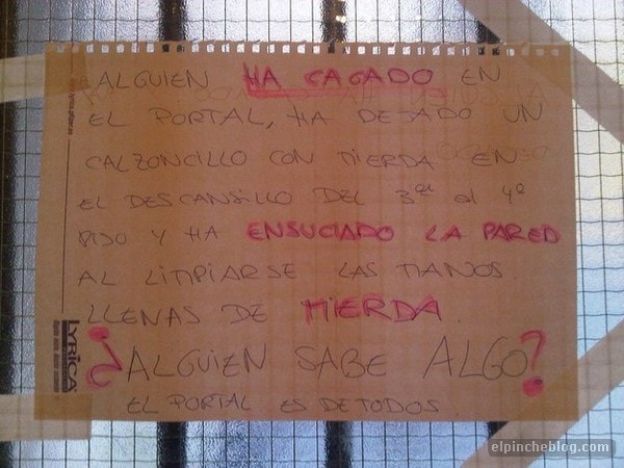 ALGUIEN HA CAGADO EN
EL PORTAL, HA DEJADO UN
CALZONCILLO CON MIERDA EN
EL DESCANSILLO DEL 3er al 4º
PISO Y HA ENSUCIADO LA PARED
AL LIMPIARSE LAS MANOS
LLENAS DE MIERDA.
¿ALGUIEN SABE ALGO?
EL PORTAL ES DE TODOS.
LYRICA
elpincheblog.com